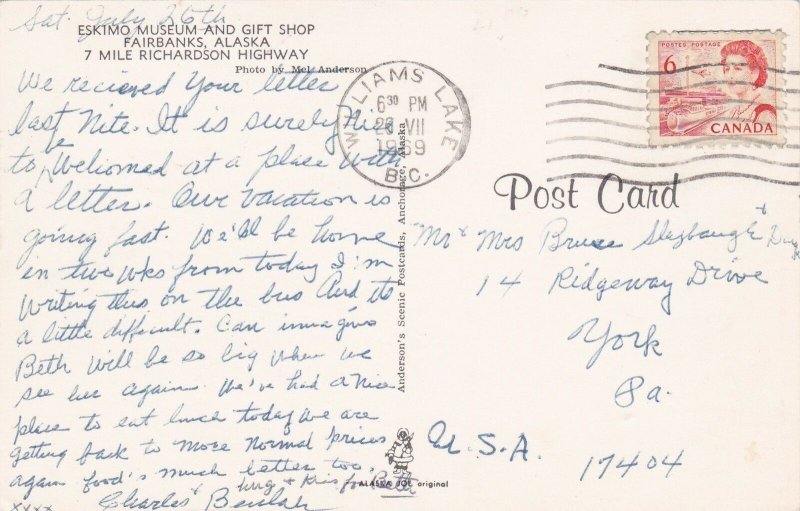 Sat. July 26th
ESKIMO MUSEUM AND GIFT SHOP
FAIRBANKS, ALASKA
7 MILE RICHARDSON HIGHWAY
Photo by Mel Anderson
We recieved your letter
last Nite. It is surely nice
to be Welcomed at a place with
a letter. Our vacation is
going fast. We'll be home
in two wks from today I'm
writing this on the bus And it's
a little difficult. Can
Beth will be so big when we
see her again. We've had a nice
place to eat lunch today We are
getting back to more normal prices
again food's much better too.
Hug & Kiss for Beth
Charles & Beulah
xxxx
WILLIAMS LAKE
6 30 PM
VII
1969
B.C.
POSTES POSTAGE
6
CANADA
Post Card
Anderson's Scenic Postcards, Anchorage, Alaska
Mr & Mrs Bruce &
14 Ridgeway Drive
York
Pa.
U.S.A. 17404
ALASKA JOE original